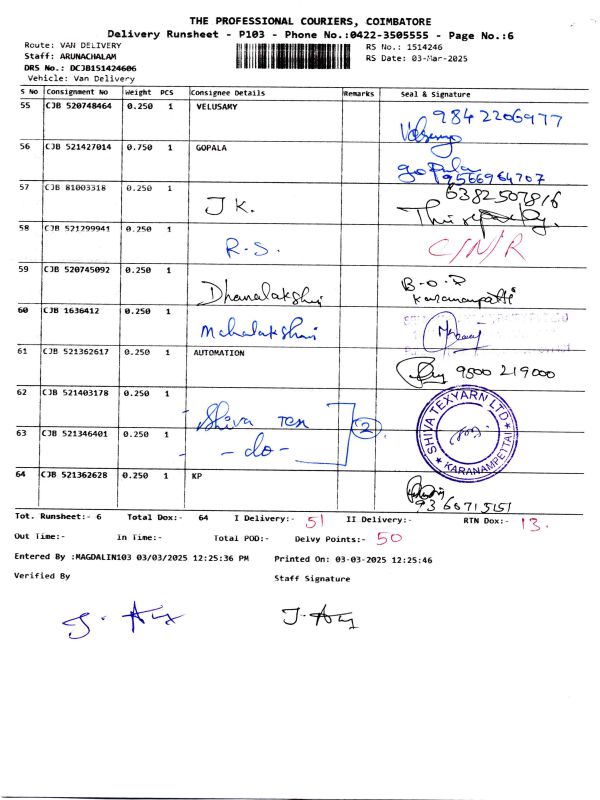 THE PROFESSIONAL COURIERS, COIMBATORE
Delivery Runsheet - P103 - Phone No.:0422-3505555 - Page No.:6
Route: VAN DELIVERY RS No.: 1514246
Staff: ARUNACHALAM RS Date: 03-Mar-2025
DRS No.: DCJB151424606
Vehicle: Van Delivery
S No Consignment No Weight PCS Consignee Details Remarks Seal & Signature
55 CJB 520748464 0.250 1 VELUSAMY 9842206977
56 CJB 521427014 0.750 1 GOPALA gopala
9566964707
57 CJB 81003318 0.250 1 J K. 6382507816
58 CJB 521299941 0.250 1 R.S. C/N/R
59 CJB 520745092 0.250 1 Dhanalakshmi B.O.P
Karanampatti
60 CJB 1636412 0.250 1 Mahalakshmi
61 CJB 521362617 0.250 1 AUTOMATION 9500 219000
62 CJB 521403178 0.250 1 Shiva Tex 2 SHIVA TEXYARN LTD
63 CJB 521346401 0.250 1 - do - KARANAMPETTAI
64 CJB 521362628 0.250 1 KP
9366715151
Tot. Runsheet:- 6 Total Dox:- 64 I Delivery:- 51 II Delivery:- RTN Dox:- 13.
Out Time:- In Time:- Total POD:- Delvy Points:- 50
Entered By :MAGDALIN103 03/03/2025 12:25:36 PM Printed On: 03-03-2025 12:25:46
Verified By Staff Signature